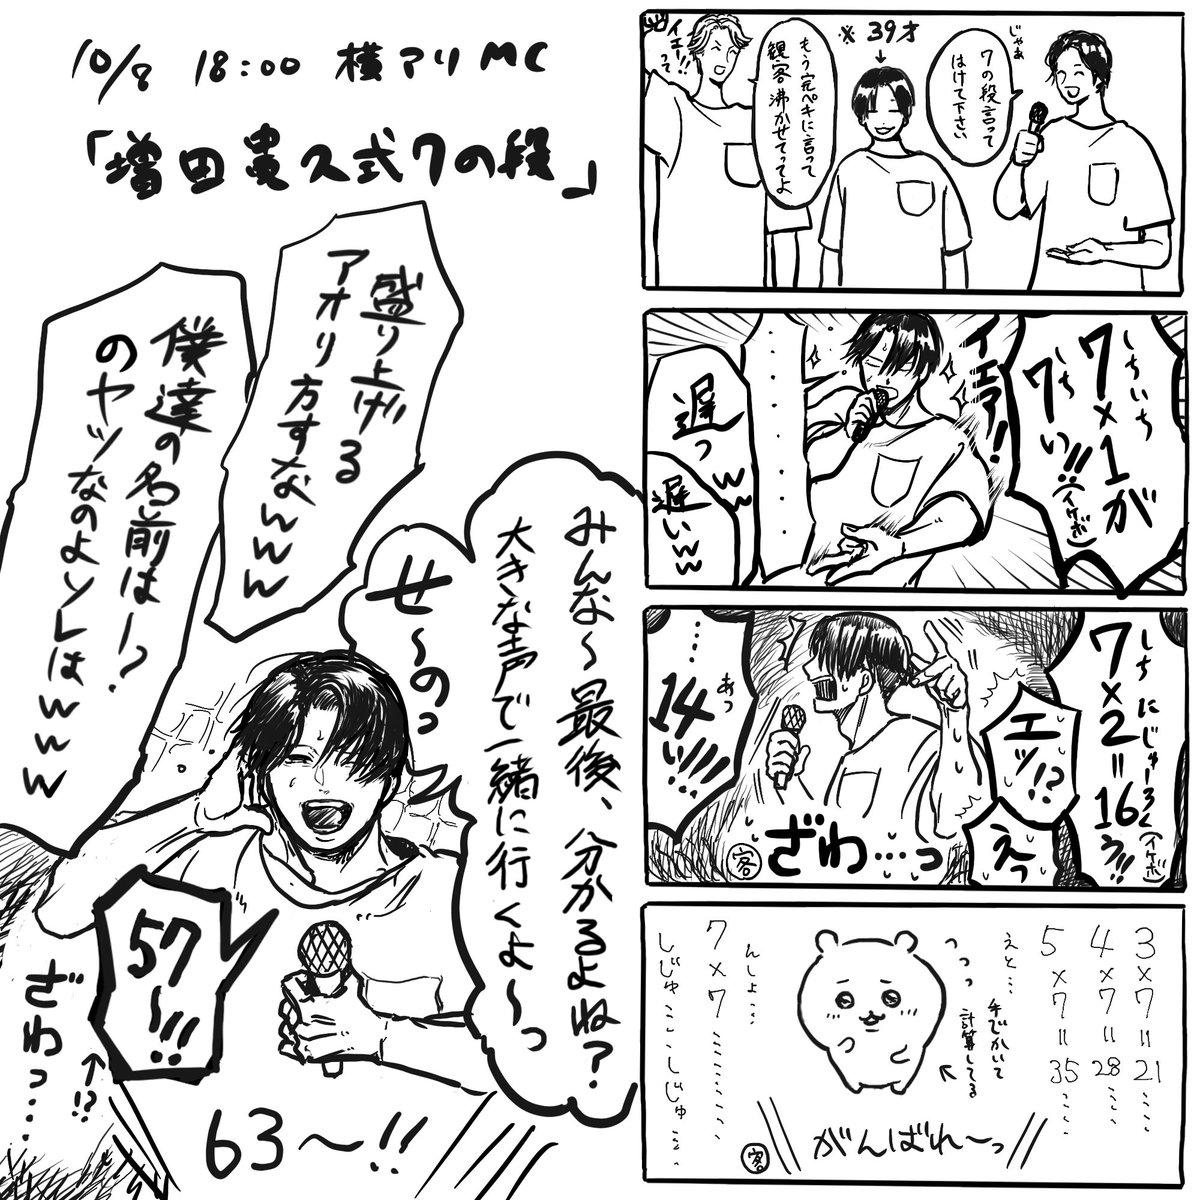 10/8 18:00 横アリMC
「増田貴久式7の段」
じゃあ
7の段言って
はけて下さい
※39才
↓
もう完ペキに言って
観客沸かせてってよ
イエーッ!!
って
しちいち
7×1が
しち
7い!!
(イケボ)
イエア!
・・・・・・
・・・・・
遅っww
遅いww
しち にじゅーろく
7×2=16う!!!
(イケボ)
エッ!?
えっ
ざわ…っ
客
……
あっ
14い!!!!
3×7=21……
4×7=28……
5×7=35……
えと…
手でかいて
計算してる
つつつ
んしょ…
7×7…………
しじゅ…しじゅ……
がんばれーっ
客
みんな〜最後、分かるよね?
大きな声で一緒に行くよ〜っ
せ〜のっ
盛り上げる
アオリ方すなwww
僕達の名前はー?
のヤツなのよソレはwww
57〜!!!
↑!?
ざわっ…
63〜!!